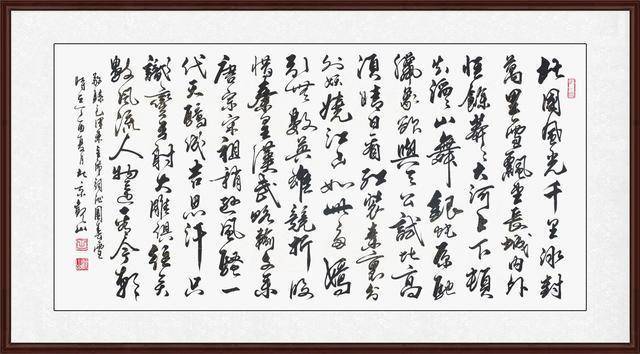 北國風光千里冰封
萬里雪飄望長城内外
惟餘莽々大河上下頓
失滔々山舞銀蛇原馳
蠟象欲與天公試比高
須晴日看紅裝素裹分
外妖嬈江山如此多嬌
引無數英雄競折腰
惜秦皇漢武略輸文采
唐宗宋祖稍遜風騷一
代天驕成吉思汗只
識彎弓射大雕俱往矣
數風流人物還看今朝
敬錄毛澤東主席詞沁園春雪
時在丁酉夏月北京觀山